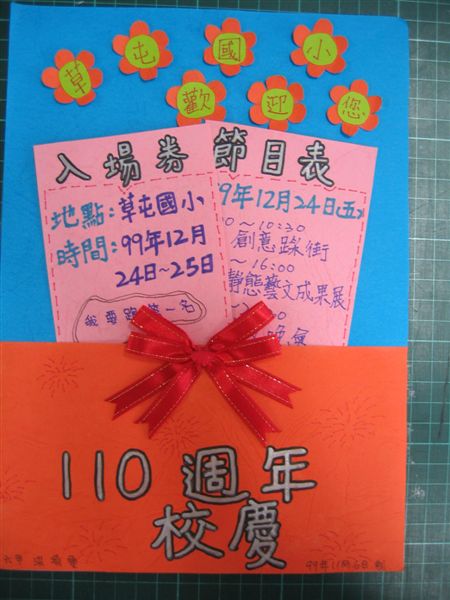 草屯國小
歡迎您
入場券
地點:草屯國小
時間:99年12月
24日~25日
我要跑第一名
節目表
99年12月24日(五)
~10:30
創意踩街
~16:00
靜態藝文成果展
110週年
校慶
六甲
99年11月6日